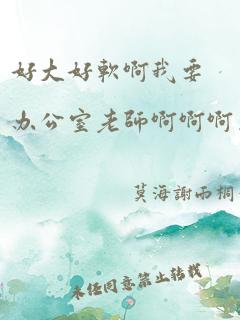 好大好軟啊我要
办公室老師啊啊啊
莫海謝雨桐
未经同意禁止转载